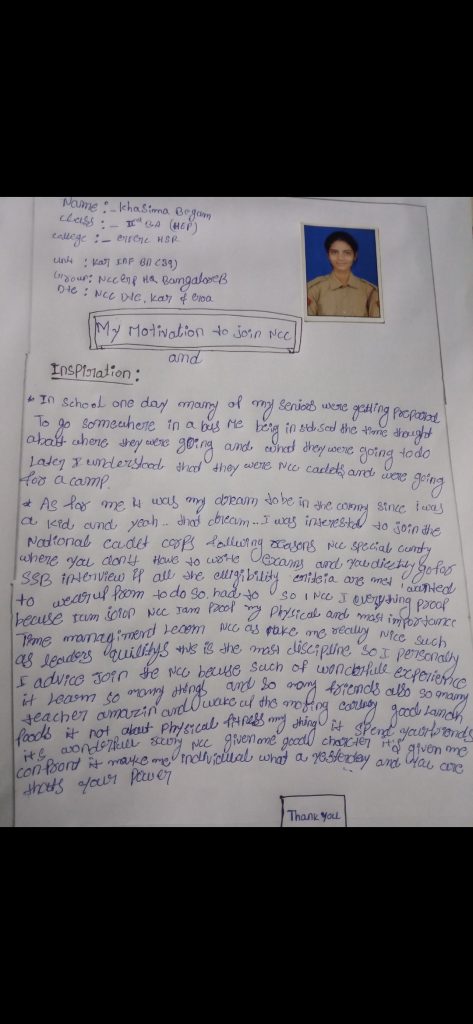 Name :- Khasima Begam
class :- IInd BA (HEP)
college :-  HSR
unit : Kar INF BN (39)
Group: NCC GRP HQ Bangalore B
Dte : NCC Dte, Kar & Goa
My Motivation to join NCC
and
Inspiration :
* In school one day many of my seniors were getting prepared
To go somewhere in a bus Me being in school the time thought
about where they were going and what they were going to do
Later I understood that they were NCC cadets, and were going
for a camp.
* As for me it was my dream to be in the army since i was
a kid and yeah.. that dream.. I was interested to join the
National cadet corps following reasons NCC special
where you don't Have to write exams and you directly go for
SSB interview if all the criteia are met i wanted
to wear to do so. had to so i NCC I everything proof
becuse join NCC I am my physical and most importance
Time Learn NCC as make me really Nice such
as Leaders this is the most discipline so I personally
I advice Join the NCC becuse such of wonderfull experience
it Learn so many things and so many friends also so many
teacher amazin and wake up the good
foods it not about physical fitness my thing it spend your friends
its wonderfull NCC given me good character it's given me
it make me individual what a yesterday and you are
thats your power
Thank you